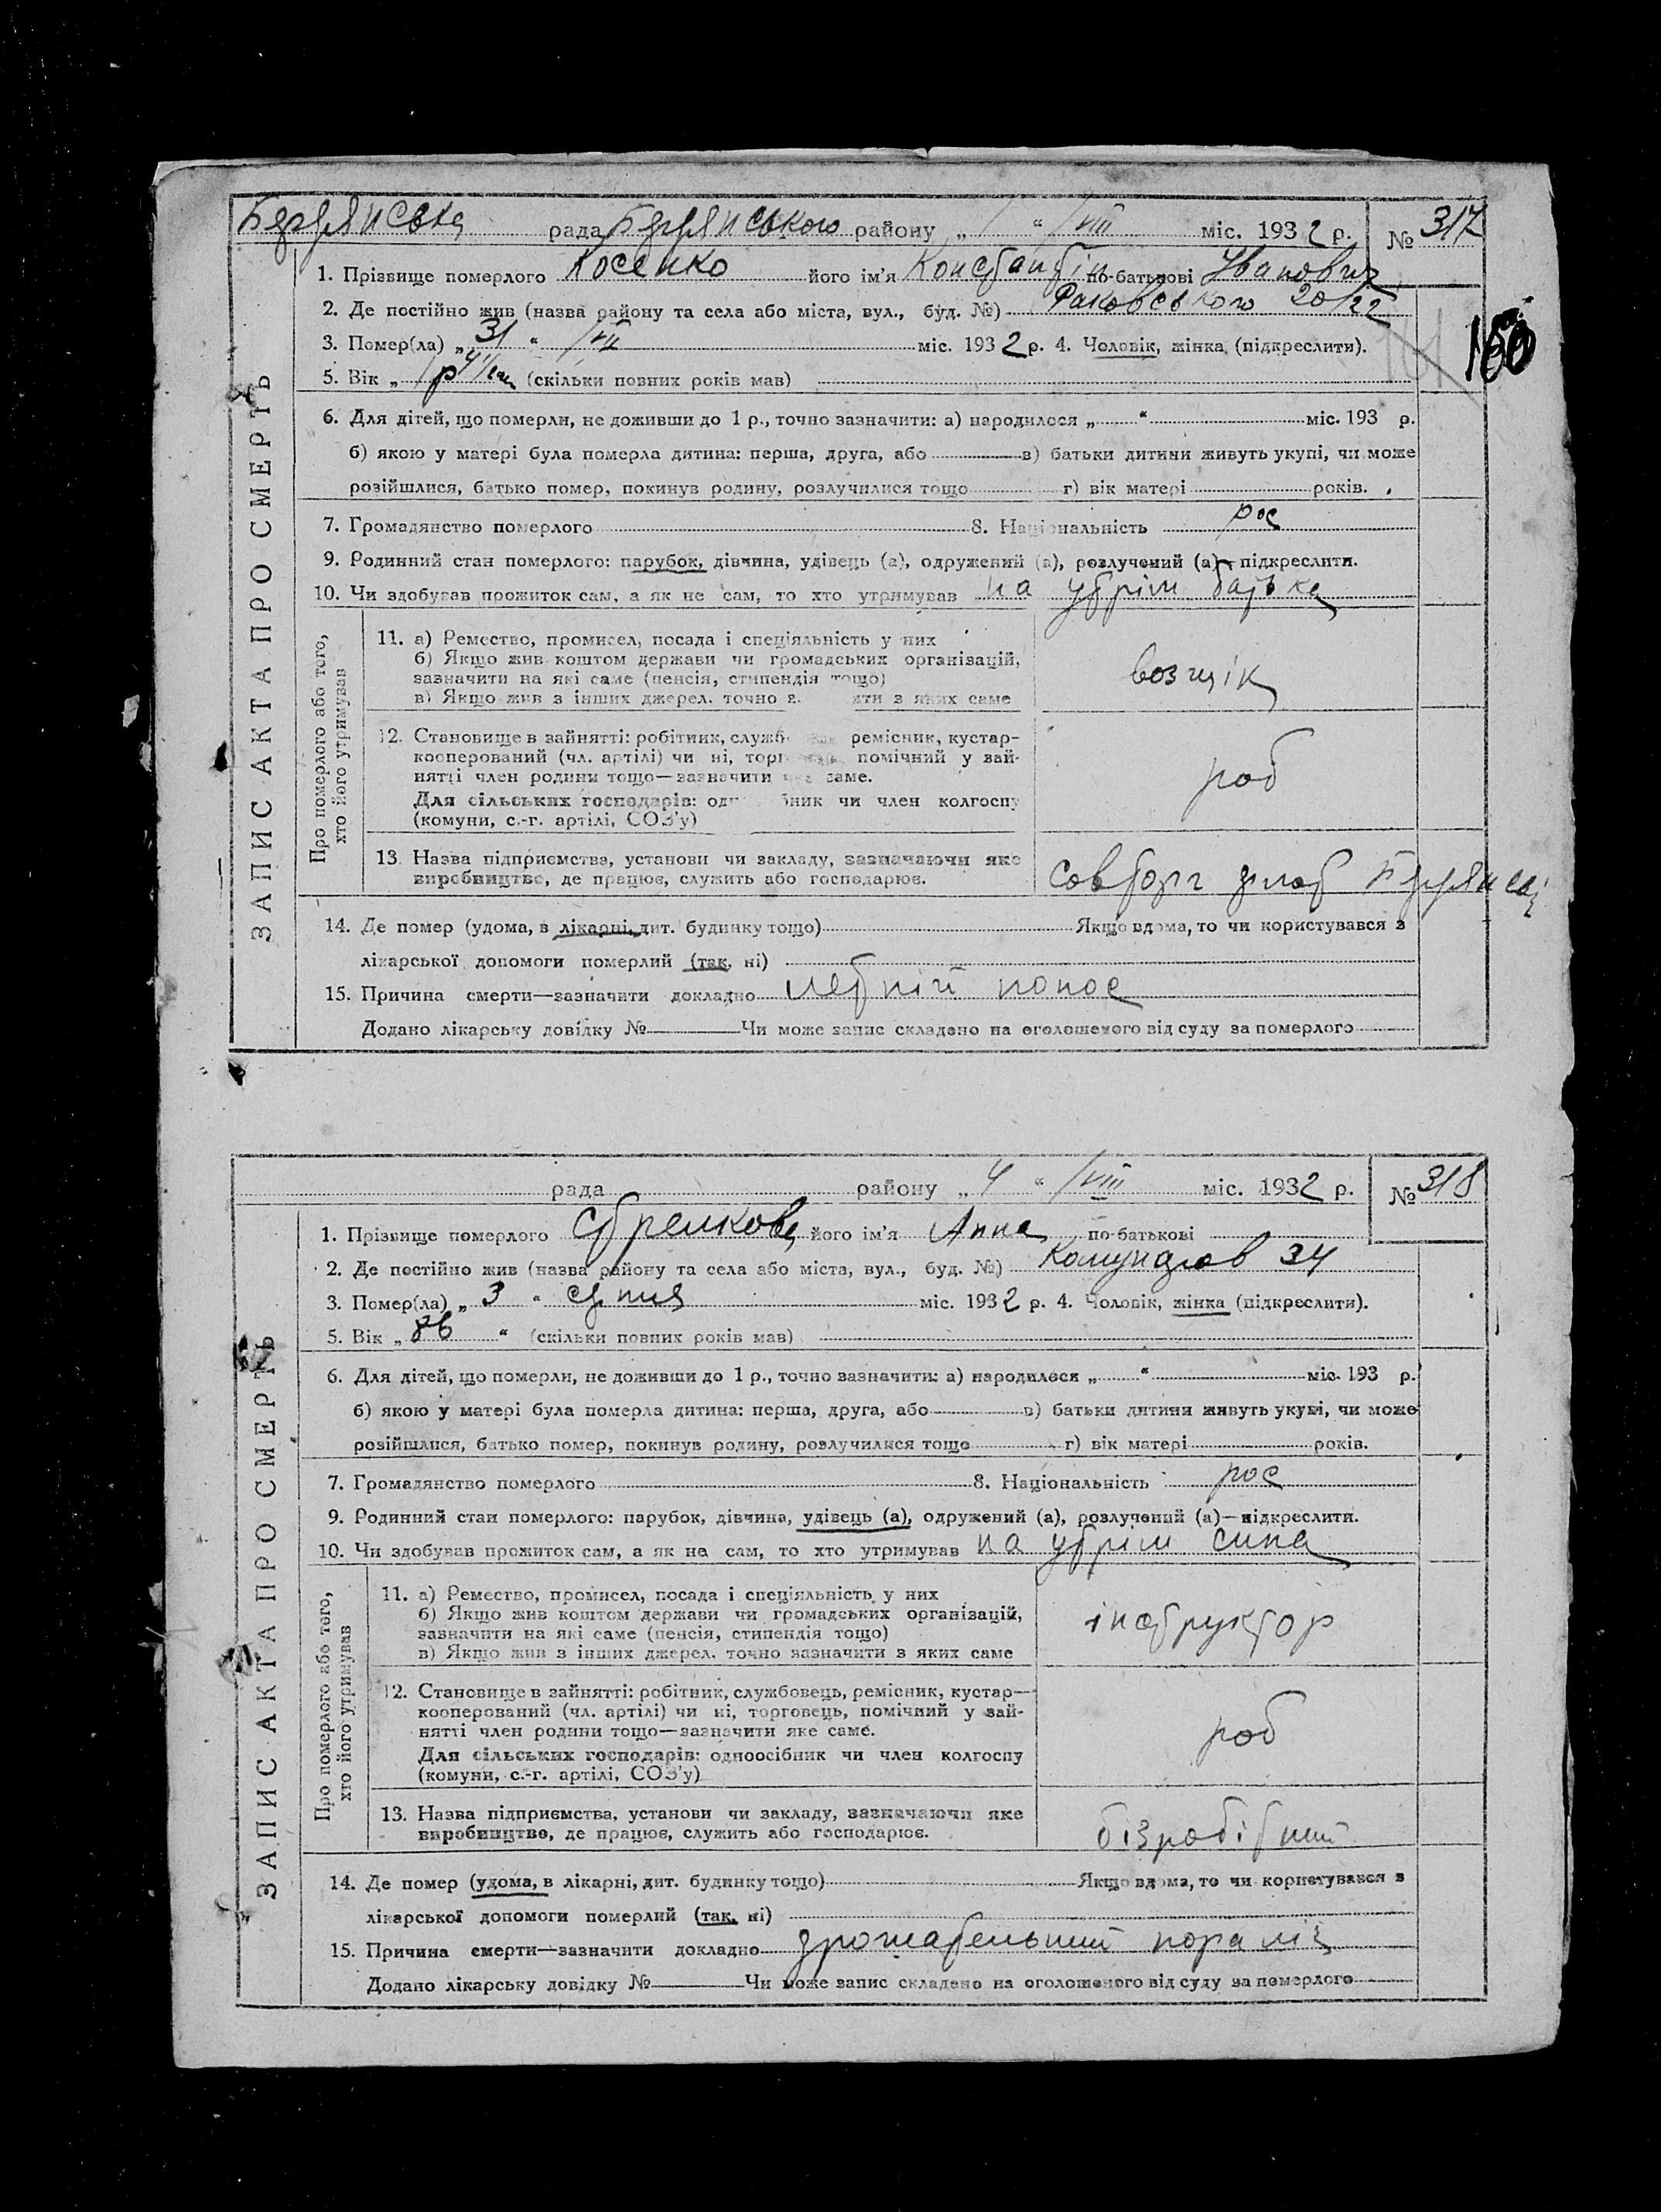 Бердянська рада Бердянського району „ 1 “ /VIII міс. 1932 р. № 317
1. Прізвище померлого Косенко його ім'я Константін по-батькові Іванович
2. Де постійно жив (назва району та села або міста, вул., буд. №) Раковського 20/22
3. Помер(ла) „ 31 “ /VII міс. 1932 р. 4. Чоловік, жінка (підкреслити).
150
5. Вік „ 1 р (скільки повних років мав)
6. Для дітей, що померли, не доживши до 1 р., точно зазначити: а) народилося „ “ міс. 193 р.
б) якою у матері була померла дитина: перша, друга, або в) батьки дитини живуть укупі, чи може
розійшлися, батько помер, покинув родину, розлучилися тощо г) вік матері років.
7. Громадянство померлого 8. Національність рос
9. Родинний стан померлого: парубок, дівчина, удівець (а), одружений (а), розлучений (а)—підкреслити.
10. Чи здобував прожиток сам, а як не сам, то хто утримував на утрім батька
ЗАПИС АКТА ПРО СМЕРТЬ
Про померлого або того, хто його утримував
11. а) Ремество, промисел, посада і спеціяльність у них
б) Якщо жив коштом держави чи громадських організацій,
зазначити на які саме (пенсія, стипендія тощо)
в) Якщо жив з інших джерел, точно з. ити з яких саме
возщік
12. Становище в зайнятті: робітник, служб ремісник, кустар-
кооперований (чл. артілі) чи ні, торг помічний у зай-
нятті член родини тощо—зазначити яке саме.
Для сільських господарів: од бник чи член колгоспу
(комуни, с.-г. артілі, СОЗ'у)
роб
13. Назва підприємства, установи чи закладу, зазначаючи яке
виробництво, де працює, служить або господарює.
совторг Бердянськ
14. Де помер (удома, в лікарні, дит. будинку тощо) Якщо вдома, то чи користувався з
лікарської допомоги померлий (так, ні)
15. Причина смерти—зазначити докладно летній понос
Додано лікарську довідку № Чи може запис складено на оголошеного від суду за померлого
рада району „ 4 “ /VIII міс. 1932 р. № 318
1. Прізвище померлого Стрелкова його ім'я Анна по-батькові
2. Де постійно жив (назва району та села або міста, вул., буд. №) Комунаров 34
3. Помер(ла) „ 3 “ серпня міс. 1932 р. 4. Чоловік, жінка (підкреслити).
5. Вік „ 86 “ (скільки повних років мав)
6. Для дітей, що померли, не доживши до 1 р., точно зазначити: а) народилося „ “ міс. 193 р.
б) якою у матері була померла дитина: перша, друга, або в) батьки дитини живуть укупі, чи може
розійшлися, батько помер, покинув родину, розлучилися тоще г) вік матері років.
7. Громадянство померлого 8. Національність рос
9. Родинний стан померлого: парубок, дівчина, удівець (а), одружений (а), розлучений (а)—підкреслити.
10. Чи здобував прожиток сам, а як не сам, то хто утримував на утрім сина
ЗАПИС АКТА ПРО СМЕРТЬ
Про померлого або того, хто його утримував
11. а) Ремество, промисел, посада і спеціяльність у них
б) Якщо жив коштом держави чи громадських організацій,
зазначити на які саме (пенсія, стипендія тощо)
в) Якщо жив з інших джерел, точно зазначити з яких саме
інструктор
12. Становище в зайнятті: робітник, службовець, ремісник, кустар—
кооперований (чл. артілі) чи ні, торговець, помічний у зай-
нятті член родини тощо—зазначити яке саме.
Для сільських господарів: одноосібник чи член колгоспу
(комуни, с.-г. артілі, СОЗ'у)
роб
13. Назва підприємства, установи чи закладу, зазначаючи яке
виробництво, де працює, служить або господарює.
бізробітний
14. Де помер (удома, в лікарні, дит. будинку тощо) Якщо вдома, то чи користувався з
лікарської допомоги померлий (так, ні)
15. Причина смерти—зазначити докладно параліч
Додано лікарську довідку № Чи може запис складено на оголошеного від суду за померлого